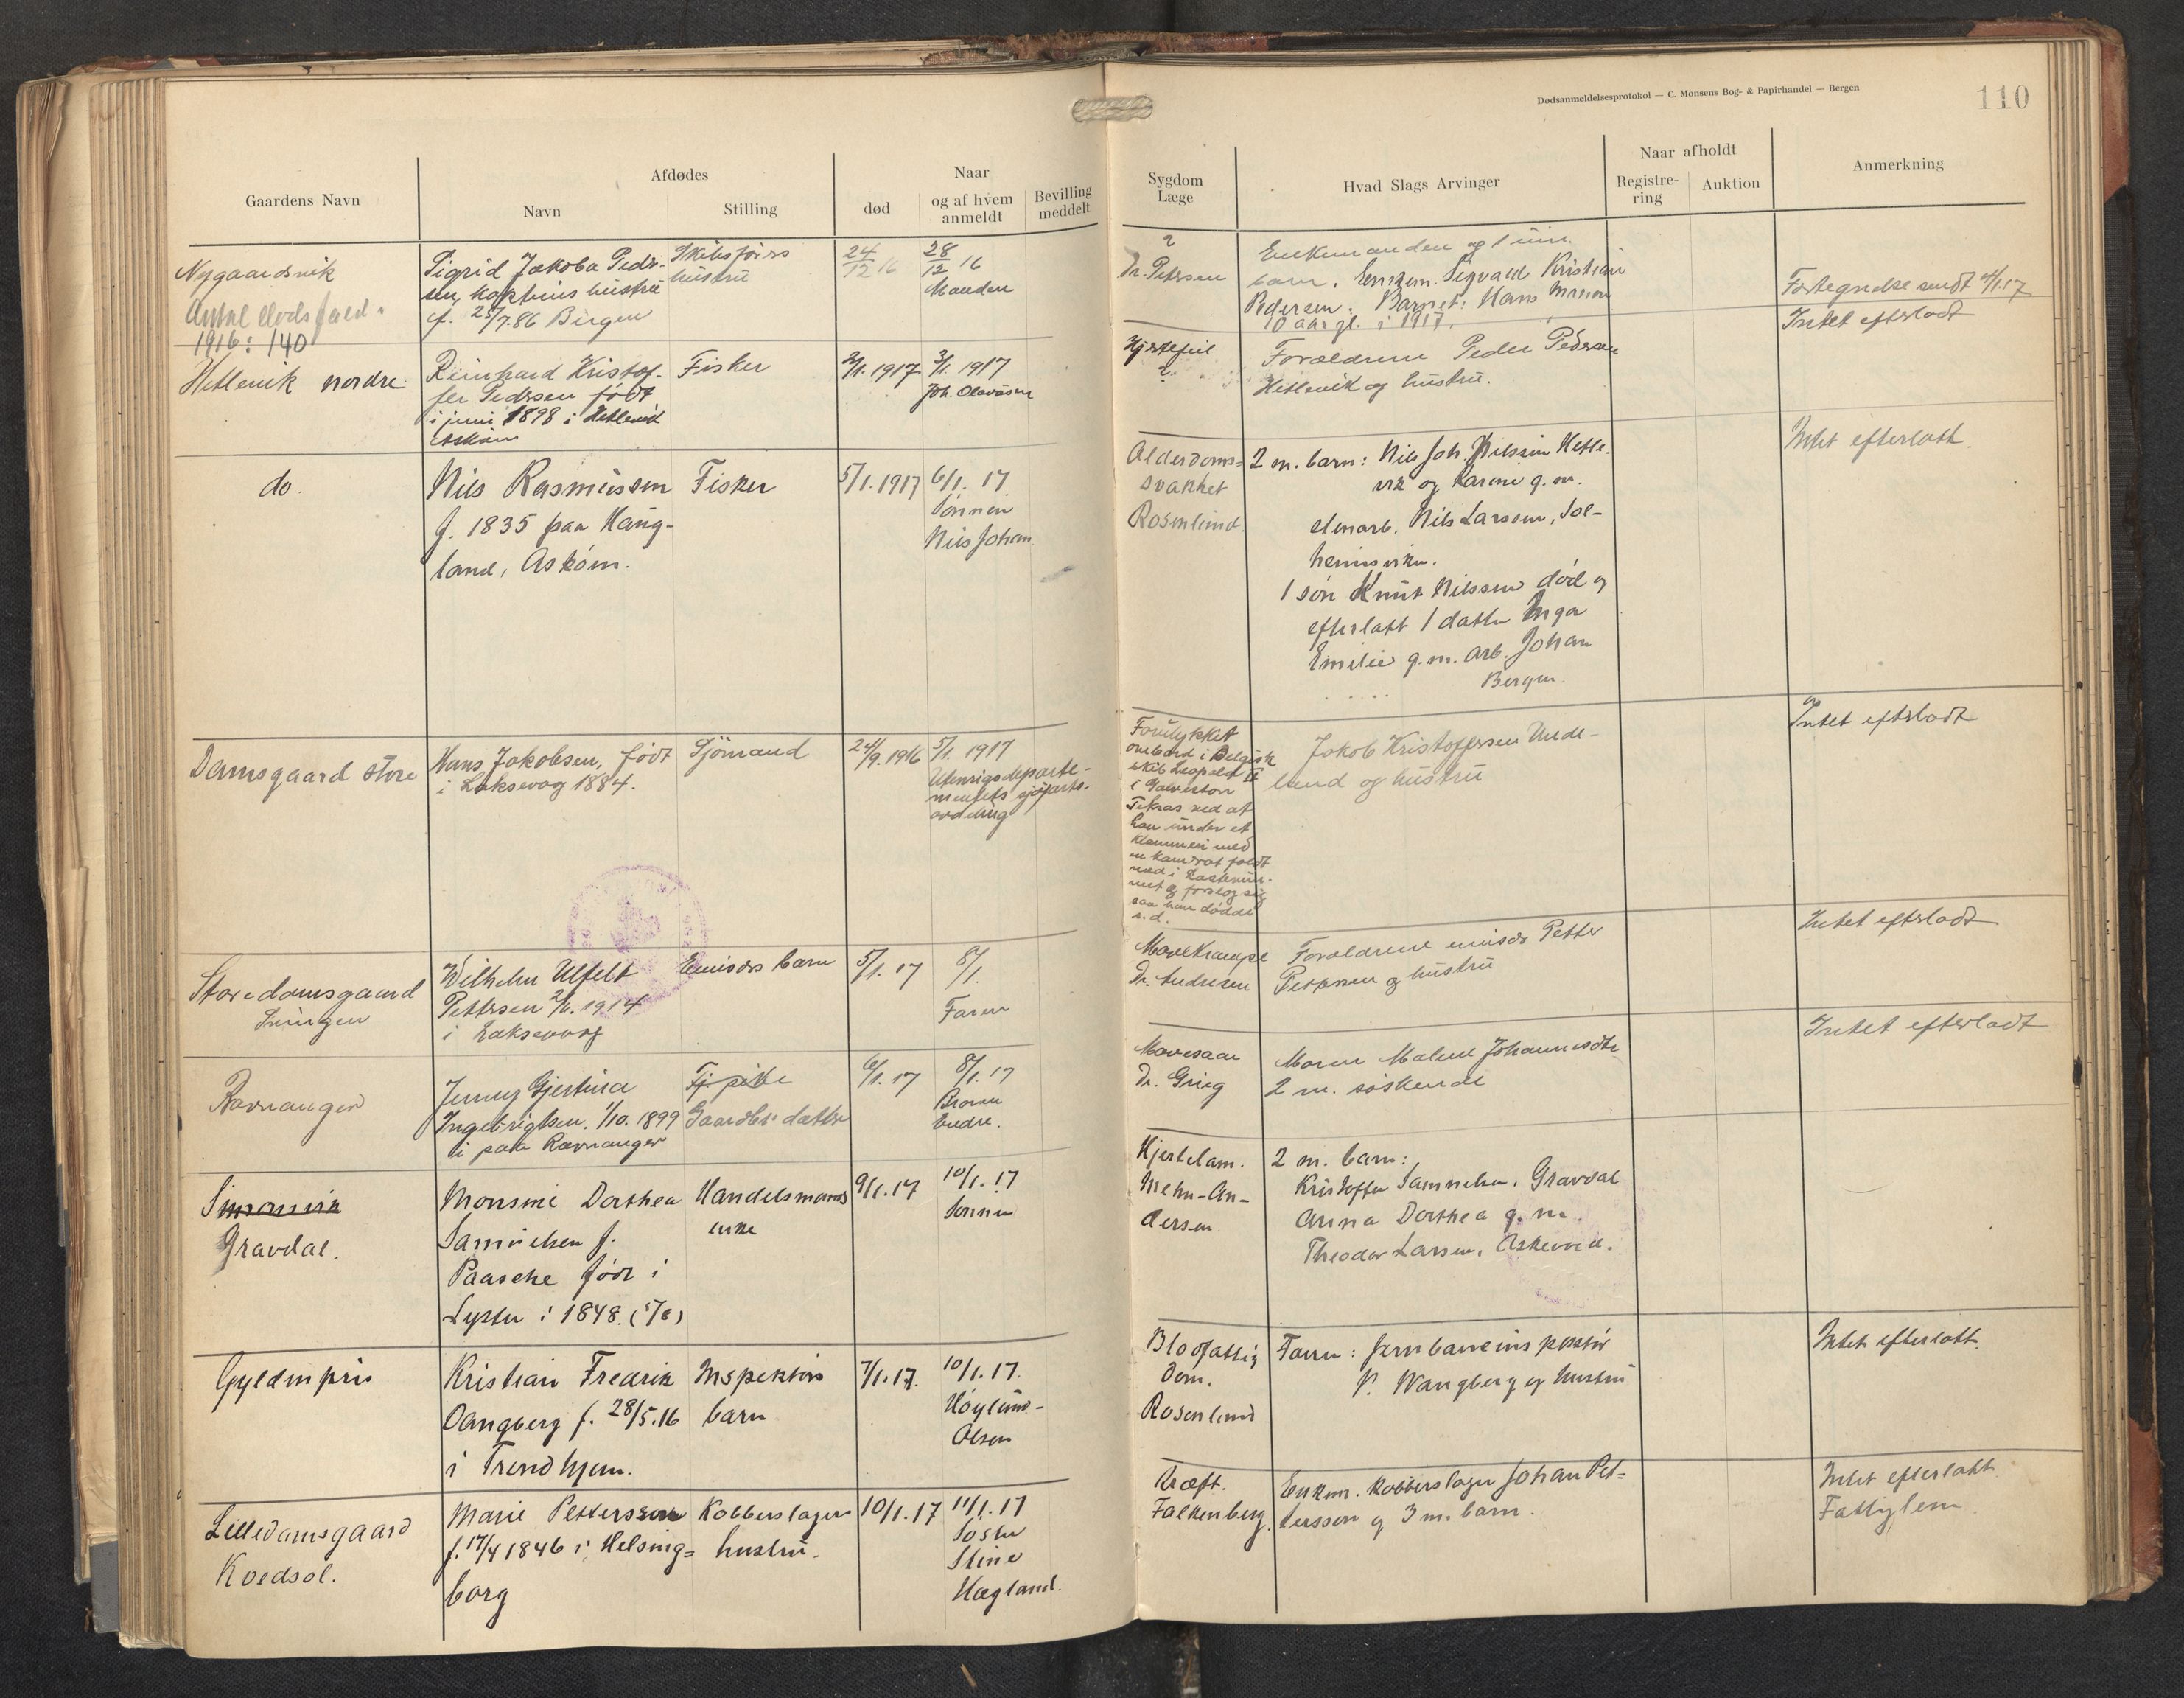 Dødsanmeldelsesprotokol — C. Monsens Bog- & Papirhandel — Bergen
110
Gaardens Navn
Afdødes
Navn
Stilling
Naar
død
og af hvem
anmeldt
Bevilling
meddelt
Sygdom
Læge
Hvad Slags Arvinger
Naar afholdt
Registre-
ring
Auktion
Anmerkning
Nygaardsvik
Antal dødsfald
1916: 140
Sigrid Jakoba Peder-
sen, kapteins hustru
f. 25/7.86 Bergen
Skibsførers
hustru
24/12 16
28/12 16
Manden
?
Dr. Petersen
Enkemanden og 1 um.
barn. Enkem. Sigvald Kristian
Pedersen. Barnet: Hans
10 aar gl. i 1917.
Fortegnelse sendt 4/1.17
Hetlevik nordre
Reinhard Kristof-
fer Pedersen født
i juni 1898 i Hetlevik
Askøen
Fisker
2/1.1917
3/1. 1917
Joh. Olavesen
Hjertefeil
?
Forældrene Peder Pedersen
Hetlevik og hustru.
Intet efterladt
do.
Nils Rasmussen
f. 1835 paa Haug-
land, Askøen.
Fisker
5/1.1917
6/1. 17
Sønnen
Nils Johan
Alderdoms-
svakhet
Rosenlund.
2 m. barn: Nils Joh. Nilssen Hetle-
vik og Karine g.m.
stenarb. Nils Larssen, Sol-
heimsviken.
1 søn Knut Nilssen død og
efterlatt 1 datter Inga
Emilie g.m. arb. Johan
Bergen.
Intet efterlatt.
Damsgaard store
Hans Jakobsen, født
i Laksevog 1884.
Sjømand
24/9.1916
5/1. 1917
Utenrigsdeparte-
mentets sjøfarts-
avdeling
Forulykket
ombord i Belgisk
skib Leopold II
i Galveston
Teksas ved at
han under et
klammeri med
en kamerat faldt
ned i lasterum-
met og forslog sig
saa han døde
s.d.
Jakob Kristoffersen Unde-
lund og hustru
Intet efterladt
Storedamsgaard
Wilhelm Ulfelt
Pettersen 2/6.1914
i Laksevog
Emisærs barn
5/1. 17
8/1.
Faren
Mavekrampe
Dr. Andresen
Forældrene emisær Petter
Petersen og hustru
Intet efterladt
Ravnanger
Jenny Gjertina
Ingebrigtsen. 1/10. 1899
i paa Ravnanger
Tj. pike
Gaardbr. datter
6/1. 17
8/1.17
Broren
Endre.
Mavesaar
Dr. Grieg
Moren Malene Johannesdtr
2 m. søskende
Intet efterladt
Simonsvik
Gravdal.
Monsine Dorthea
Samuelsen f.
Paasche født i
Lyster i 1848. (5/8)
Handelsmands
enke
9/1.17
10/1. 17
Sønnen
Hjertelam.
Mehn-An-
dersen
2 m. barn:
Kristoffer Samuelsen, Gravdal
Anna Dorthea g. m.
Theodor Larsen, Askevold.
Gyldenpris
Kristian Fredrik
Vangberg f. 28/5.16
i Trondhjem.
Inspektørs
barn
7/1.17.
10/1. 17.
Høylund-
Olsen
Blodfattig
dom.
Rosenlund
Faren: Jernbaneinspektør
P. Wangberg og hustru
Intet efterlatt.
Lilledamsgaard
Kvedsol.
Marie Pettersson
f. 17/4 1846 i Helsing-
borg
Kobberslager
hustru.
10/1.17
11/1. 17
Søster
Stine
Hægland.
Kræft.
Falkenberg.
Enkem. kobberslager Johan Pet-
tersson og 3 m. barn.
Intet efterlatt.
Fattiglem.